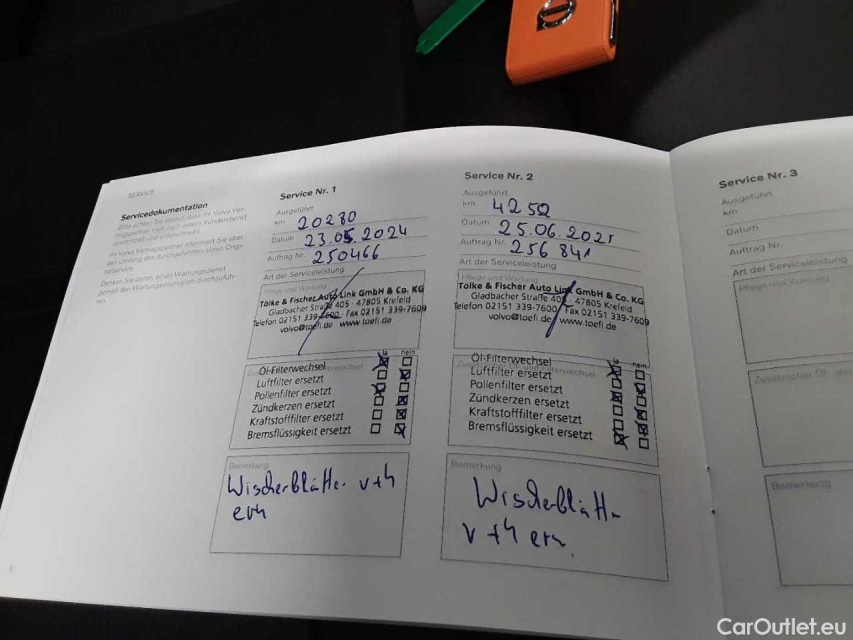 SERVICE
Servicedokumentation
Service Nr. 1
Ausgeführt
km 20280
Datum 23.05.2024
Auftrag Nr. 250466
Art der Serviceleistung
Pflege und Wartung
Tölke & Fischer Auto Link GmbH & Co. KG
Gladbacher Straße 405 · 47805 Krefeld
Telefon 02151 339-7600 Fax 02151 339-7609
volvo@toefi.de www.toefi.de
ja nein
Öl-Filterwechsel
Luftfilter ersetzt
Pollenfilter ersetzt
Zündkerzen ersetzt
Kraftstofffilter ersetzt
Bremsflüssigkeit ersetzt
Bemerkung
Wischerblätter v+h
ern
Service Nr. 2
Ausgeführt
km 4252
Datum 25.06.2025
Auftrag Nr. 256841
Art der Serviceleistung
Pflege und Wartung
Tölke & Fischer Auto Link GmbH & Co. KG
Gladbacher Straße 405 · 47805 Krefeld
Telefon 02151 339-7600 Fax 02151 339-7609
volvo@toefi.de www.toefi.de
ja nein
Öl-Filterwechsel
Luftfilter ersetzt
Pollenfilter ersetzt
Zündkerzen ersetzt
Kraftstofffilter ersetzt
Bremsflüssigkeit ersetzt
Bemerkung
Wischerblätter
v+h ern.
Service Nr. 3
Ausgeführt
km
Datum
Auftrag Nr.
Art der Serviceleistung
Pflege und Wartung
Zusätzlicher Öl- und
Bemerkung
CarOutlet.eu